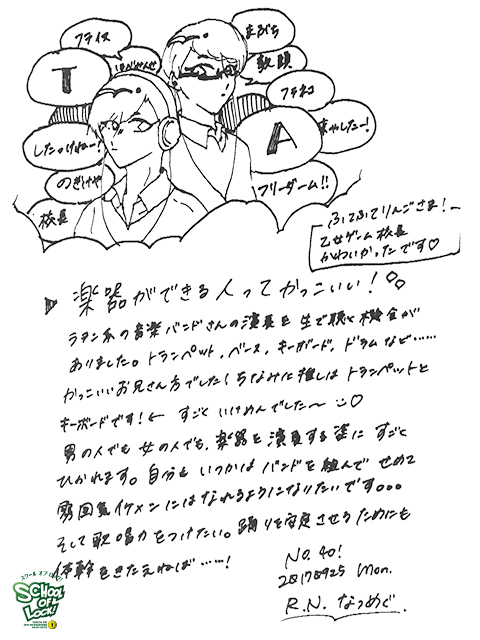 フライス
まぶち
教頭
T
フラネコ
A
したっけねー!
のぎけや
校長
フリーダーム!!
ふてふてりんごさま!
乙女ゲーム校長
かわいかったです♡
楽器ができる人ってかっこいい!
ラテン系の音楽バンドさんの演奏を生で聴く機会が
ありました。トランペット、ベース、キーボード、ドラムなど……
かっこいいお兄さん方でした!ちなみに推しはトランペットと
キーボードです!← すごくいけめんでした〜♡
男の人でも女の人でも、楽器を演奏する姿にすごく
ひかれます。自分もいつかはバンドを組んでせめて
雰囲気イケメンにはなれるようになりたいです。。。
そして歌唱力をつけたい。踊りを安定させるためにも
体幹をきたえねば……!
No.40!
20170925 Mon.
R.N. なつめぐ
スクール オブ ロック!
SCHOOL OF LOCK!